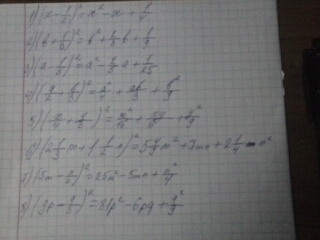 1) (x - 1/2)² = x² - x + 1/4
2) (b + 1/3)² = b² + 2/3 b + 1/9
3) (a - 1/5)² = a² - 2/5 a + 1/25
4) (a/2 + b/3)² = a²/4 + ab/3 + b²/9
6) (2 1/3 m + 1 1/2 n)² = 5 4/9 m² + 7mn + 2 1/4 n²
7) (5m - n/2)² = 25m² - 5mn + n²/4
8) (9p - q/3)² = 81p² - 6pq + q²/9